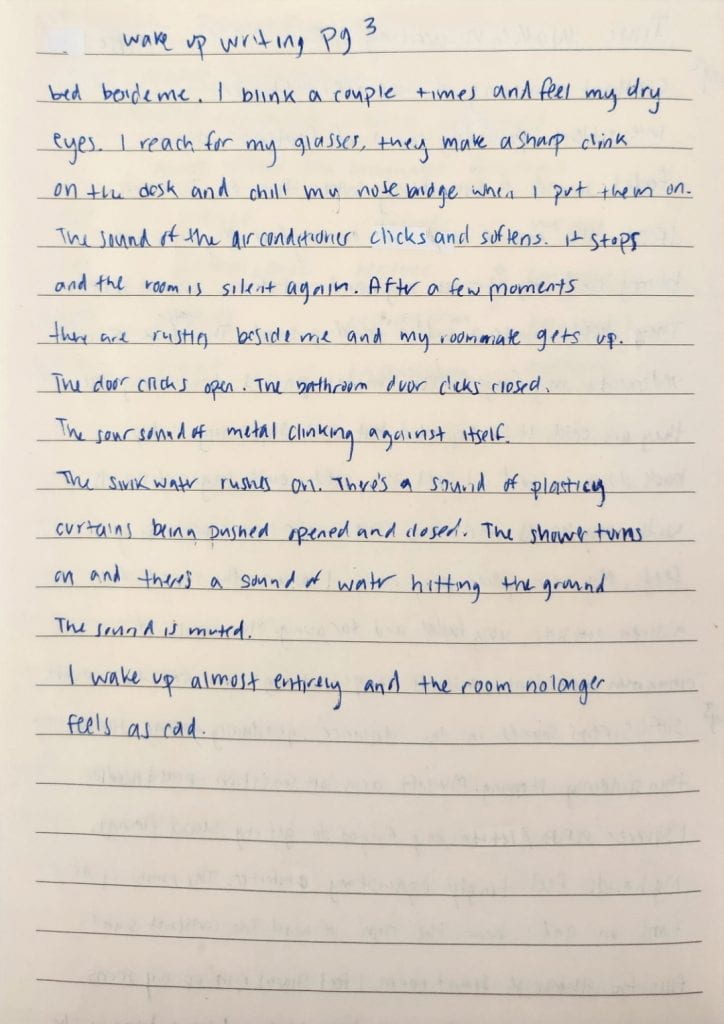 wake up writing pg 3
bed beside me. I blink a couple times and feel my dry
eyes. I reach for my glasses, they make a sharp clink
on the desk and chill my nose bridge when I put them on.
The sound of the air conditioner clicks and softens. it stops
and the room is silent again. After a few moments
there are rustling beside me and my roommate gets up.
The door clicks open. The bathroom door clicks closed.
The sour sound of metal clinking against itself.
The sink water rushes on. There's a sound of plasticy
curtains being pushed opened and closed. The shower turns
on and there's a sound of water hitting the ground
The sound is muted.
I wake up almost entirely and the room no longer
feels as cold.